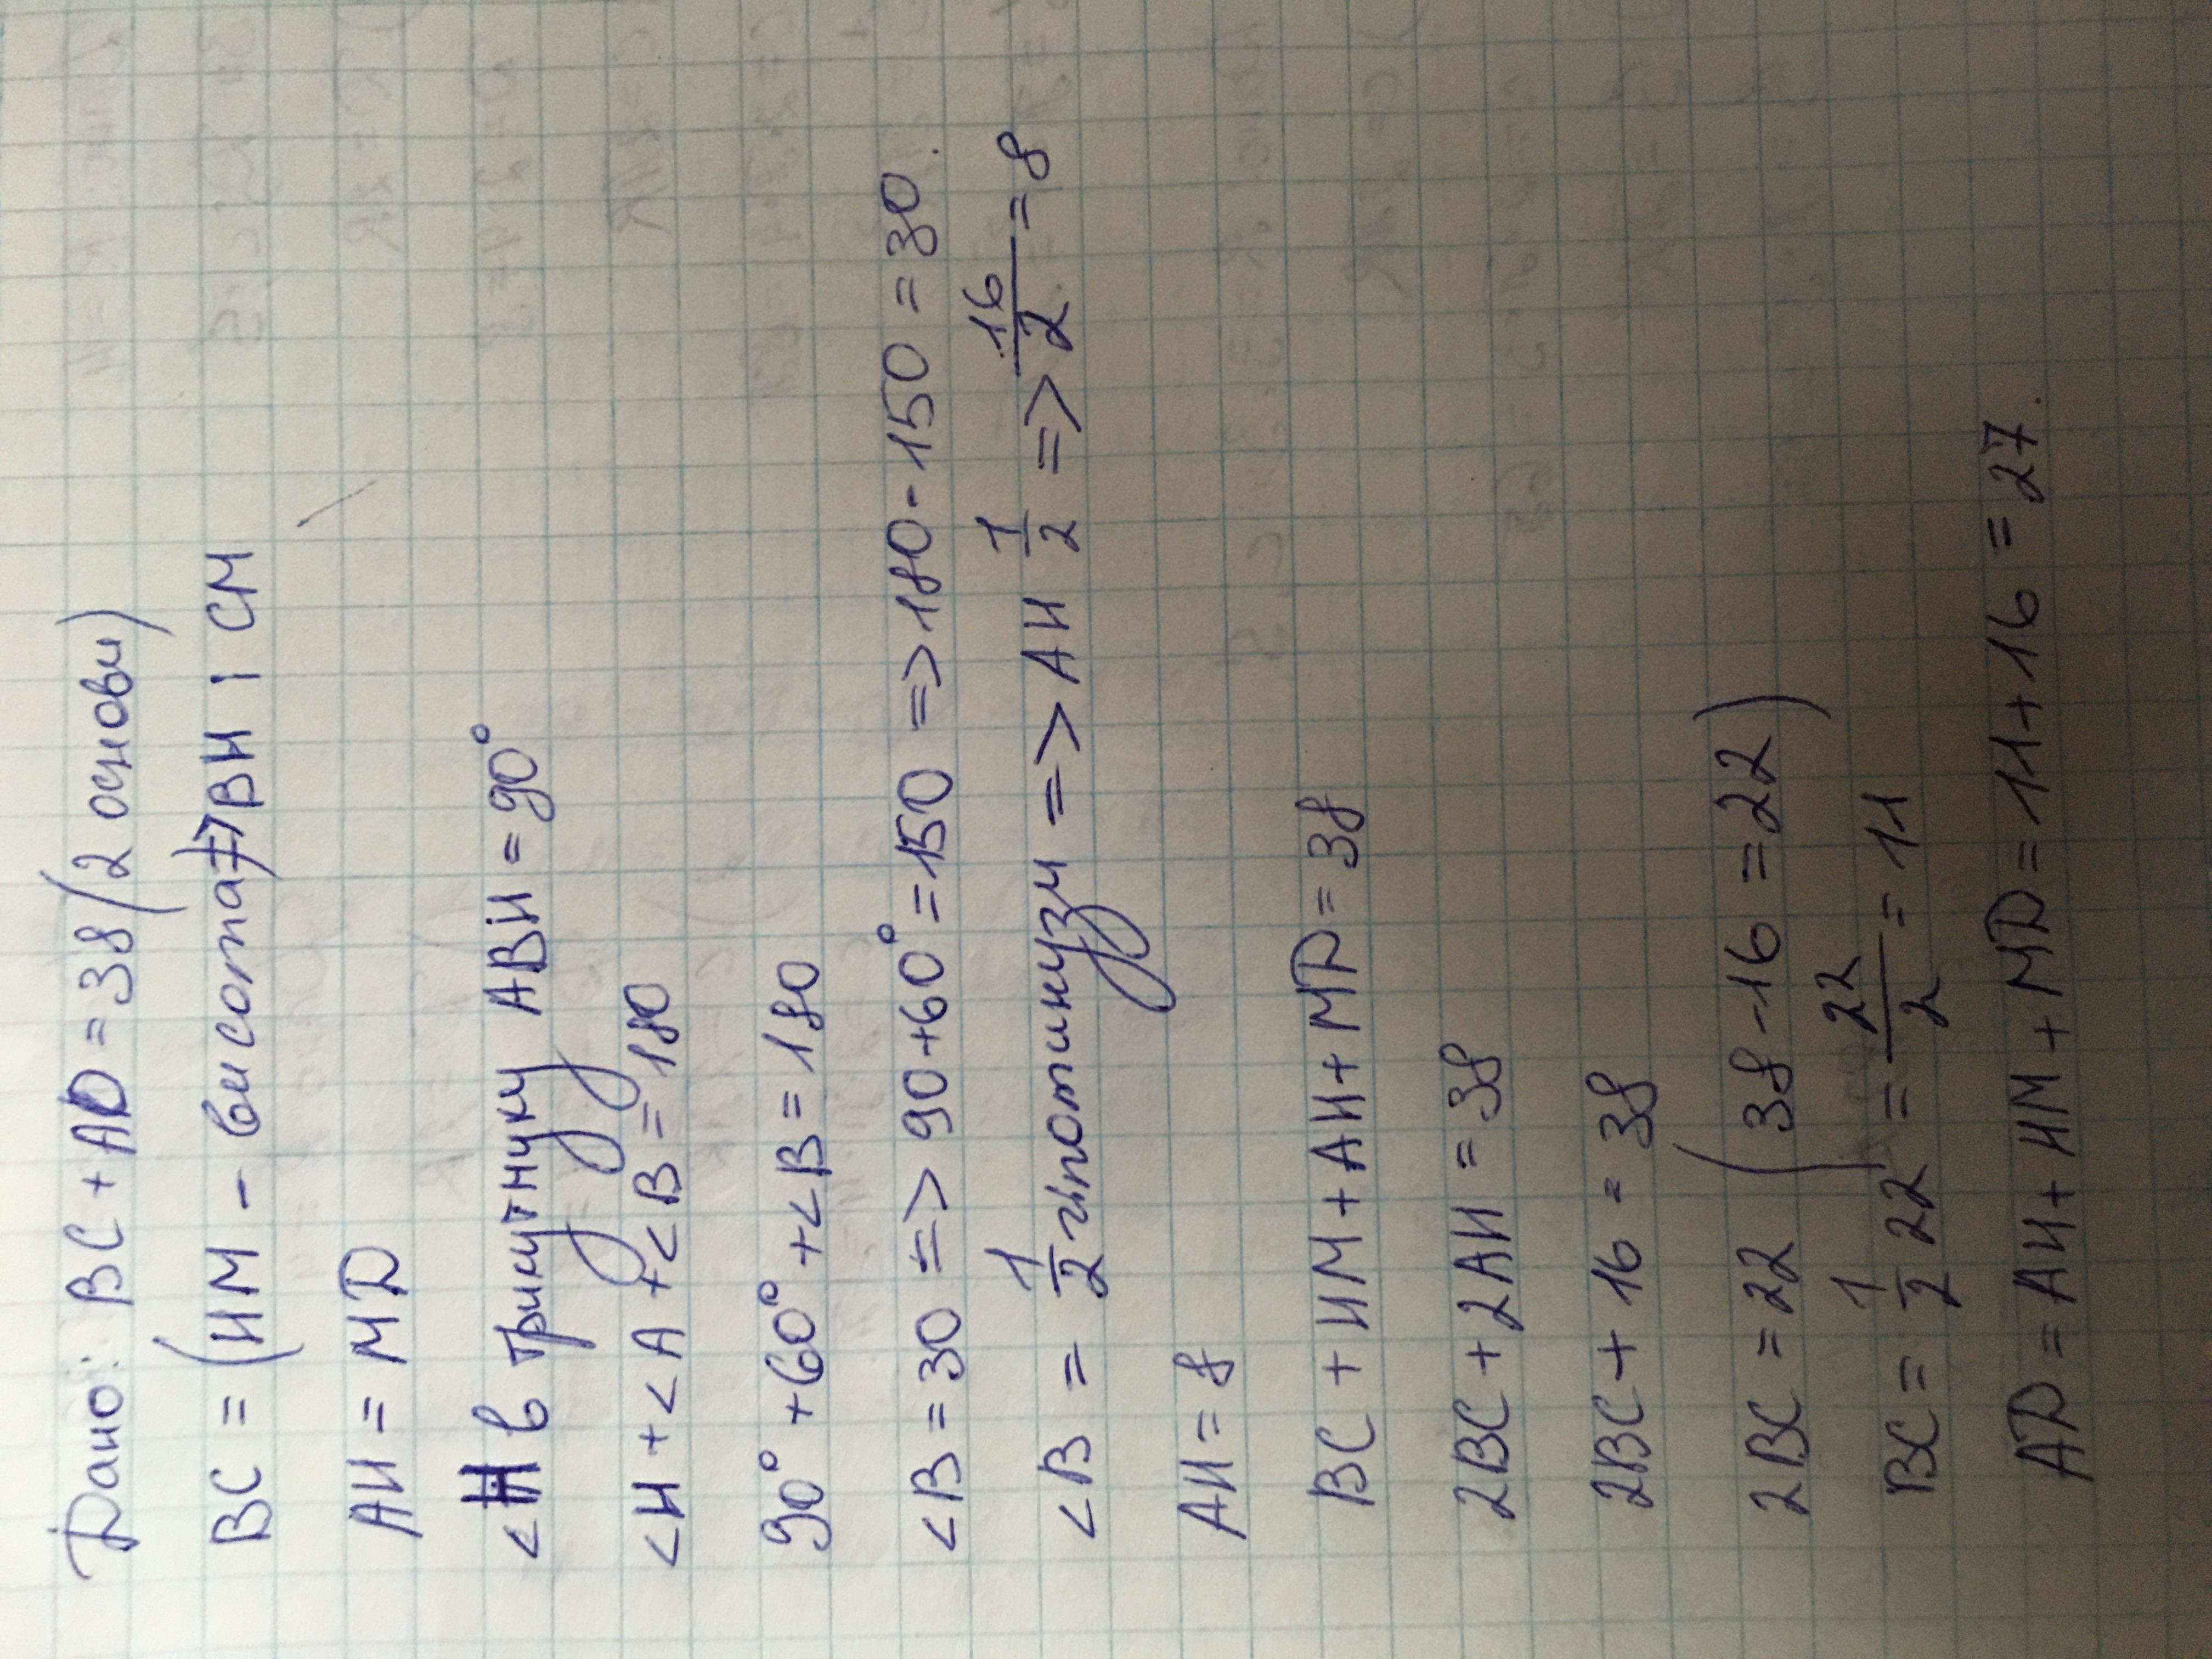 Дано: BC + AD = 38 (2 основи)
BC = (HM - висота) => BH i CM
AH = MD
<H в трикутнику ABH = 90°
<H + <A + <B = 180
90° + 60° + <B = 180
<B = 30 => 90 + 60° = 150 => 180 - 150 = 30.
<B = 1/2 гіпотинузи => AH 1/2 => 16/2 = 8
AH = 8
BC + HM + AH + MD = 38
2BC + 2AH = 38
2BC + 16 = 38
2BC = 22 (38 - 16 = 22)
BC = 1/2 22 = 22/2 = 11
AD = AH + HM + MD = 11 + 16 = 27.